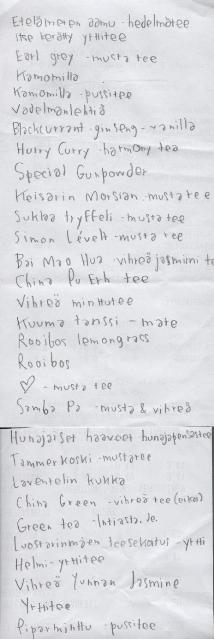 Etelämeren aamu - hedelmätee
itse kerätty yrttitee
Earl grey - musta tee
Kamomilla
Kamomilla - pussitee
Vadelmanlehtiä
Blackcurrant - ginseng - vanilla
Hurry Curry - harmony tea
Special Gunpowder
Keisarin Morsian - musta tee
Sukkla tryffeli - musta tee
Simon Lévelt - musta tee
Bai Mao Hua - vihreä jasmiini t
China Pu Erh tee
Vihreä minttutee
Kuuma tanssi - mate
Rooibos lemongrass
Rooibos
♡ - musta tee
Samba Pa - musta & vihreä
Hunajaiset haaveet hunajapensastee
Tammerkoski - mustatee
Laventelin kukka
China Green - vihreä tee (aito)
Green tea - Intiasta.
Luostarinmäen teesekoitus - yrtti
Helmi - yrttitee
Vihreä Yunnan Jasmine
Yrttitee
Piparminttu - pussitee